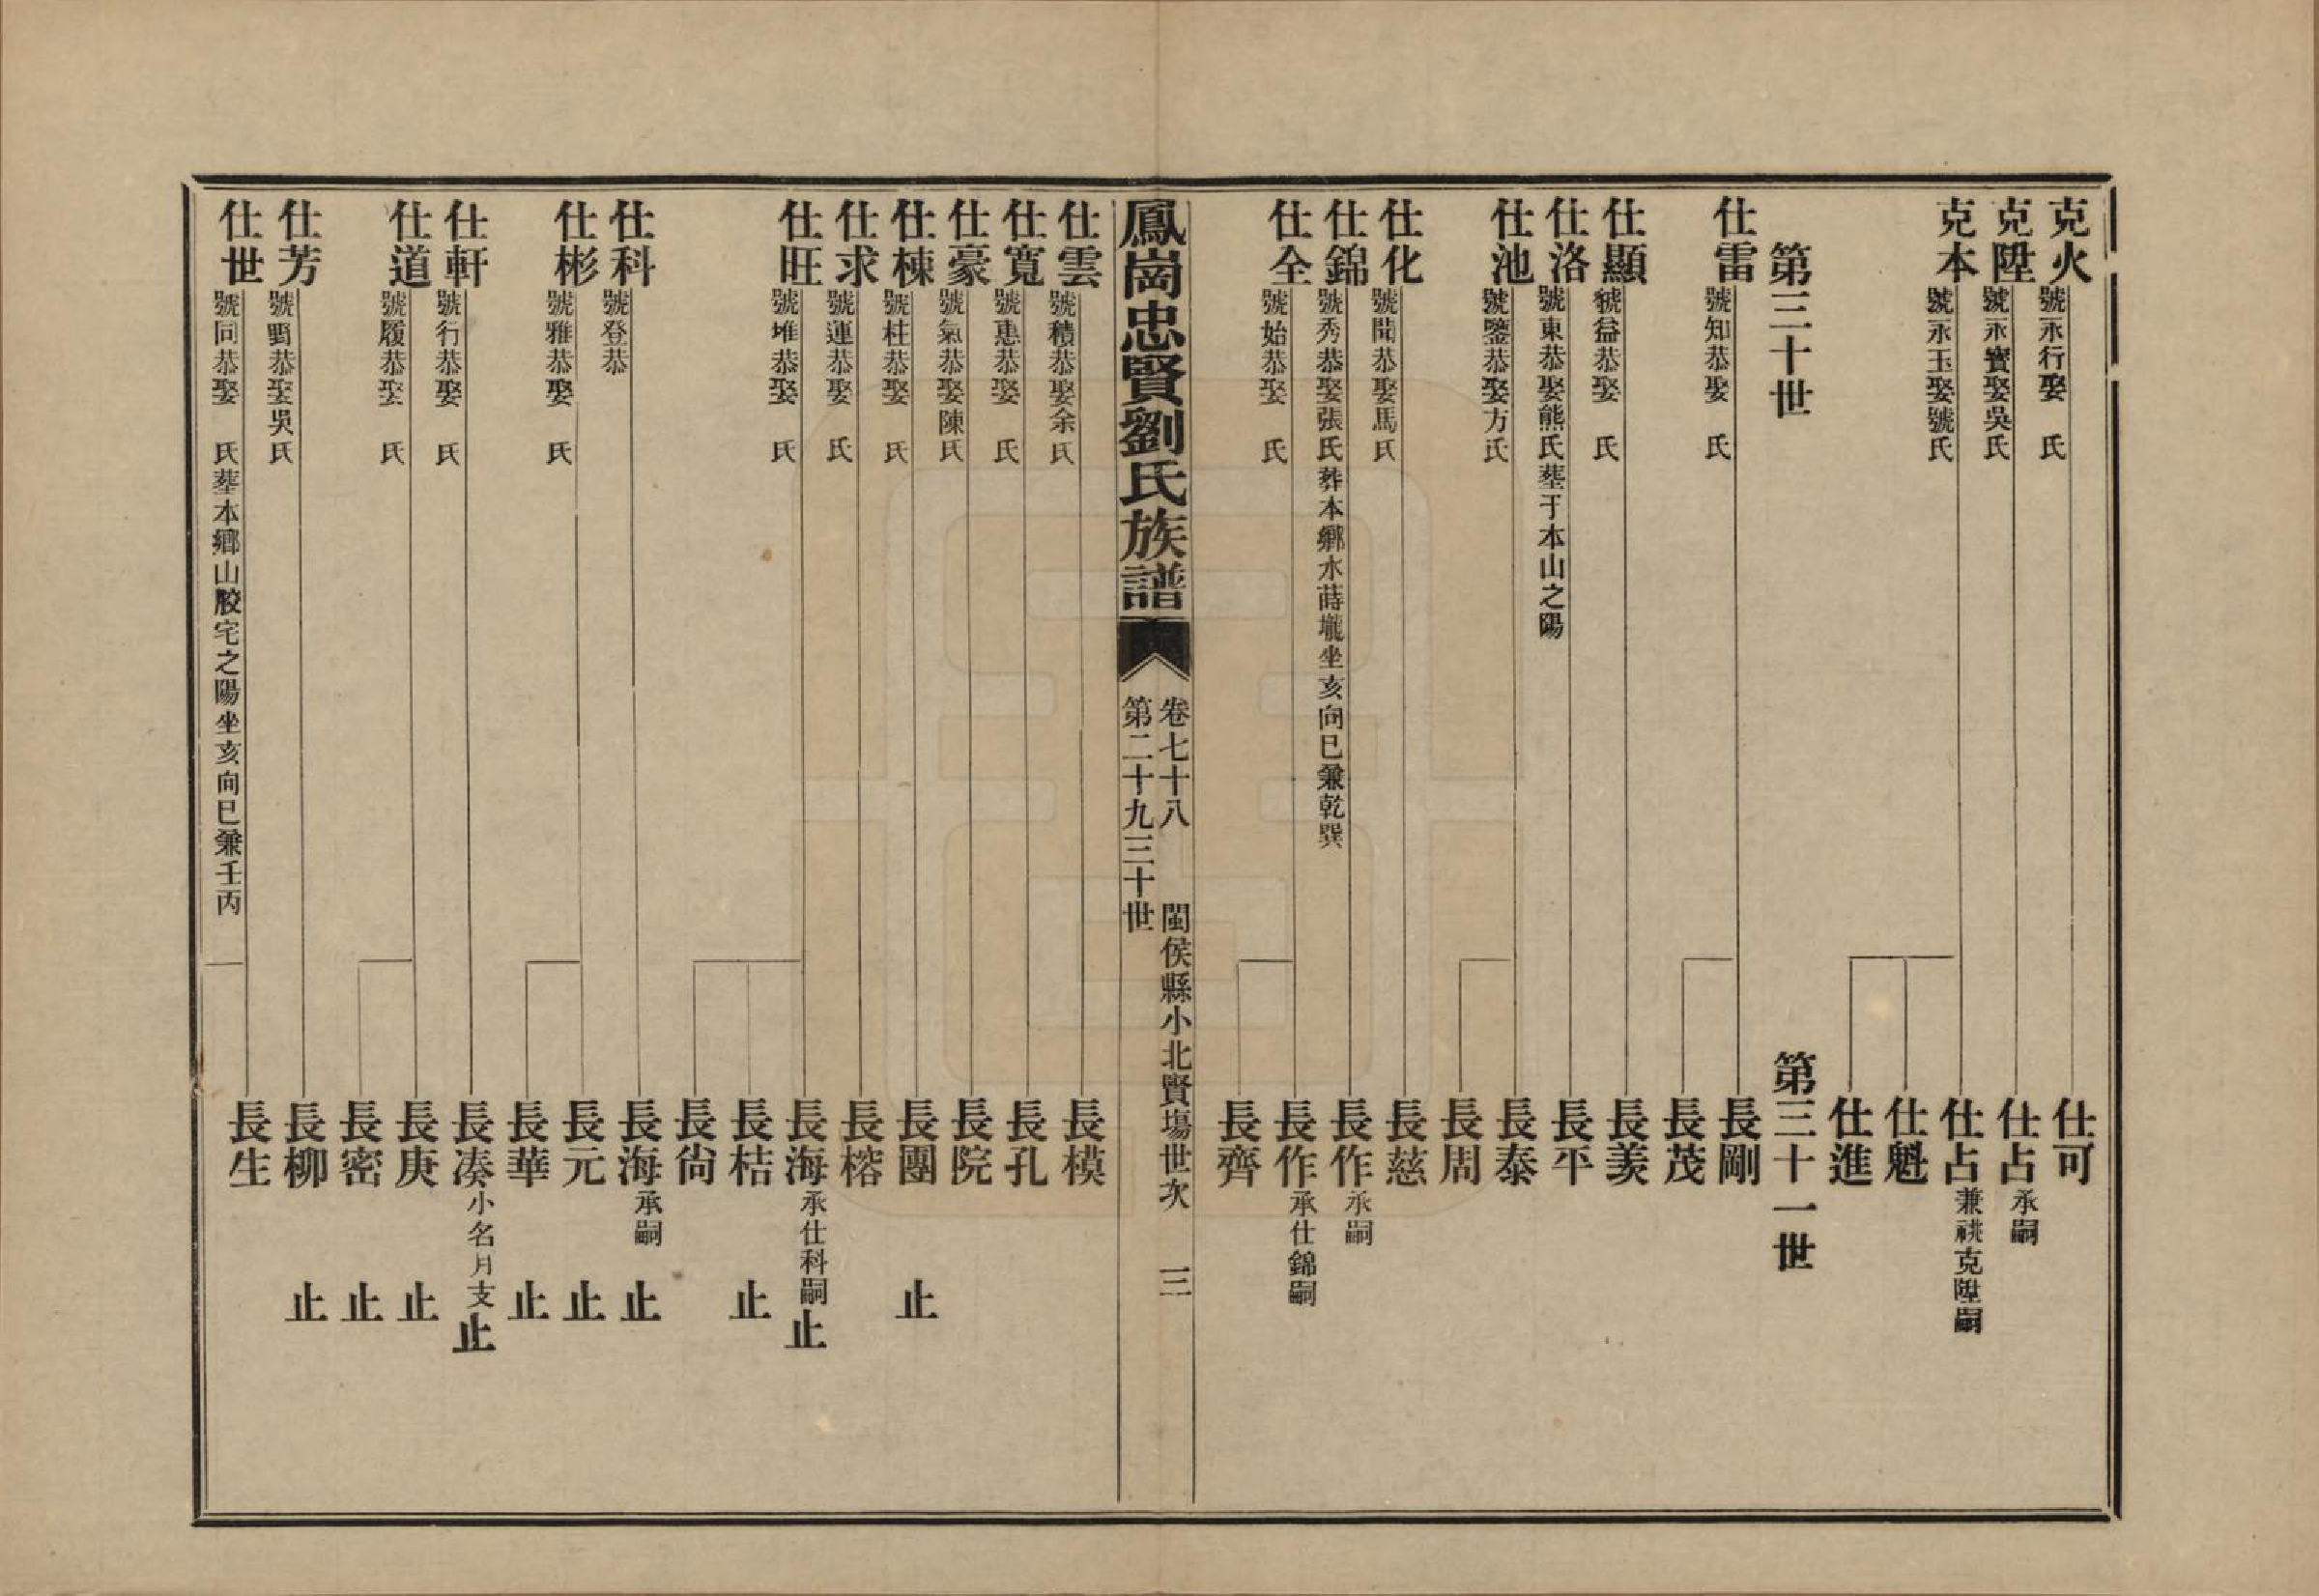 克火 號永行娶 氏
仕可
克陞 號永寶娶吳氏
仕占 承嗣
克本 號永玉娶號氏
仕占 兼祧克陞嗣
仕魁
仕進
第三十世
第三十一世
仕雷 號知恭娶 氏
長剛
長茂
仕顯 號益恭娶 氏
長羨
仕洛 號東恭娶熊氏塟于本山之陽
長平
仕池 號鑒恭娶方氏
長泰
長周
仕化 號聞恭娶馬氏
長慈
仕錦 號秀恭娶張氏葬本鄉水蒔壠坐亥向巳兼乾巽
長作 承嗣
仕全 號始恭娶 氏
長作 承仕錦嗣
長齊
鳳崗忠賢劉氏族譜
卷七十八 閩侯縣小北賢場世次 三
第二十九三十世
仕雲 號積恭娶余氏
長模
仕寬 號惠恭娶 氏
長孔
仕豪 號氣恭娶陳氏
長院
仕棟 號柱恭娶 氏
長團 止
仕求 號運恭娶 氏
長榕
仕旺 號堆恭娶 氏
長海 承仕科嗣 止
長桔 止
長尚
仕科 號登恭
長海 承嗣 止
仕彬 號雅恭娶 氏
長元 止
長華 止
仕軒 號行恭娶 氏
長凑 小名月支 止
仕道 號履恭娶 氏
長庚 止
長密 止
仕芳 號野恭娶吳氏
長柳 止
仕世 號同恭娶 氏塟本鄉山膠宅之陽坐亥向巳兼壬丙
長生